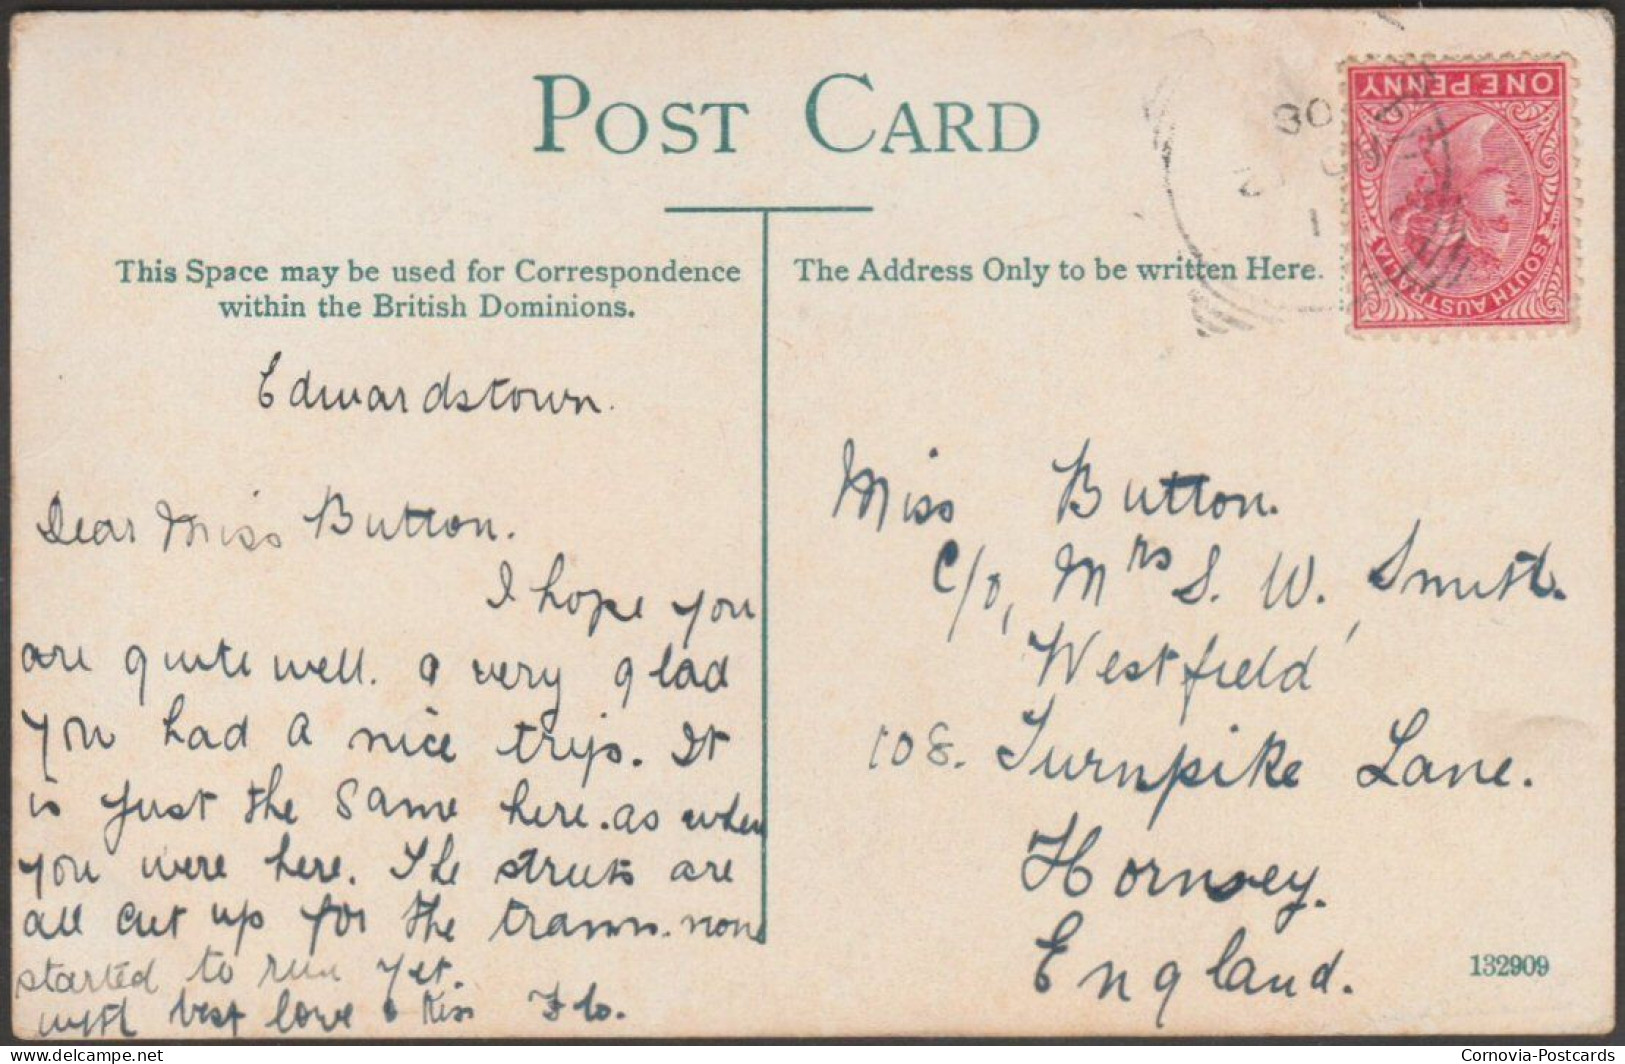 POST CARD
This Space may be used for Correspondence
within the British Dominions.
The Address Only to be written Here.
ONE PENNY
SOUTH AUSTRALIA
Edwardstown.
Dear Miss Button.
I hope you
are quite well. & very glad
you had a nice trip. It
is just the same here. as when
you were here. The streets are
all cut up for the trams. none
started to run yet.
with best love & Kiss Flo.
Miss Button.
C/o, Mrs S. W. Smith.
Westfield,
108. Turnpike Lane.
Hornsey.
England.
132909
Cornovia-Postcards
delcampe.net